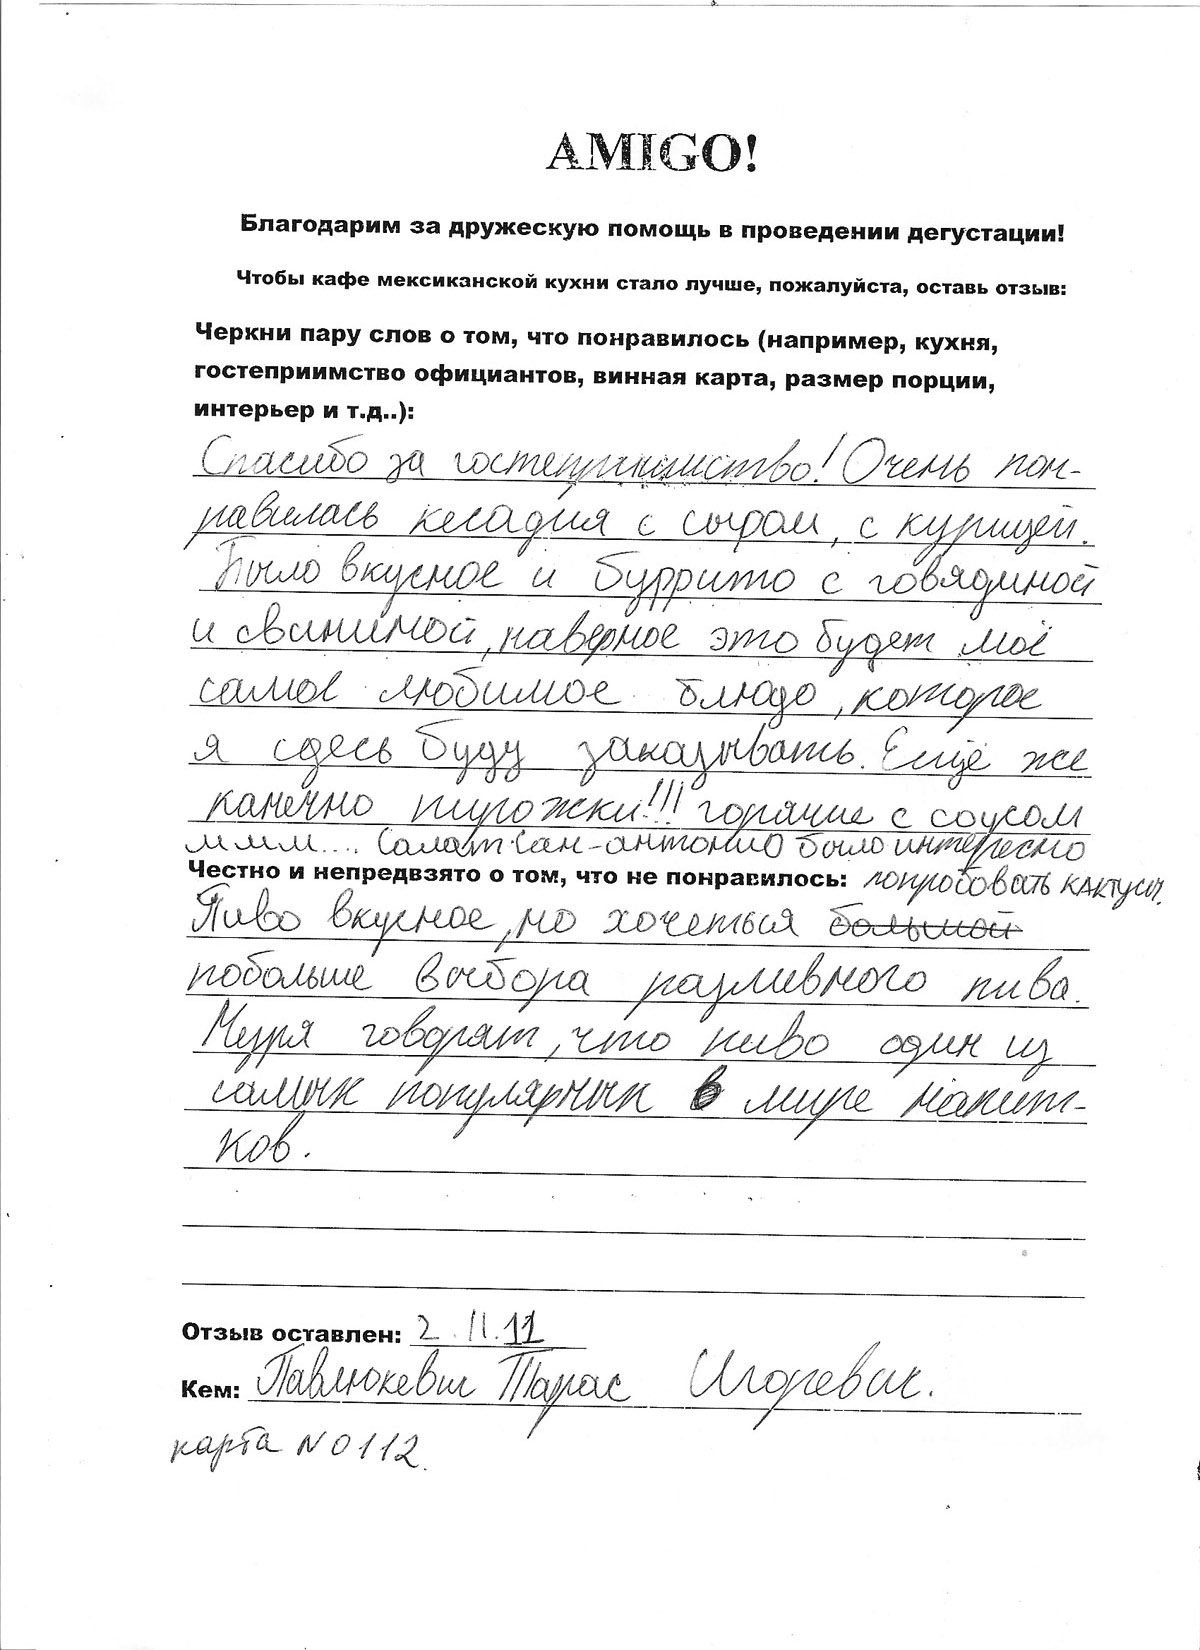 AMIGO!
Благодарим за дружескую помощь в проведении дегустации!
Чтобы кафе мексиканской кухни стало лучше, пожалуйста, оставь отзыв:
Черкни пару слов о том, что понравилось (например, кухня,
гостеприимство официантов, винная карта, размер порции,
интерьер и т.д..):
Спасибо за гостеприимство! Очень пон-
равилась кесадия с сыром, с курицей.
Было вкусное и буррито с говядиной
и свининой, наверное это будет моё
самое любимое блюдо, которое
я сдесь буду заказывать. Ещё же
канечно пирожки!!! горячие с соусом
ммм.... Салат Сан-антонио было интересно
Честно и непредвзято о том, что не понравилось: попробовать кактусы.
Пиво вкусное, но хочеться большой
побольше выбора разливного пива.
Мудря говорят, что пиво один из
самых популярных в мире напит-
ков.
Отзыв оставлен: 2.11.11
Кем: Павлюкевич Тарас Игоревич.
карта N 0112.